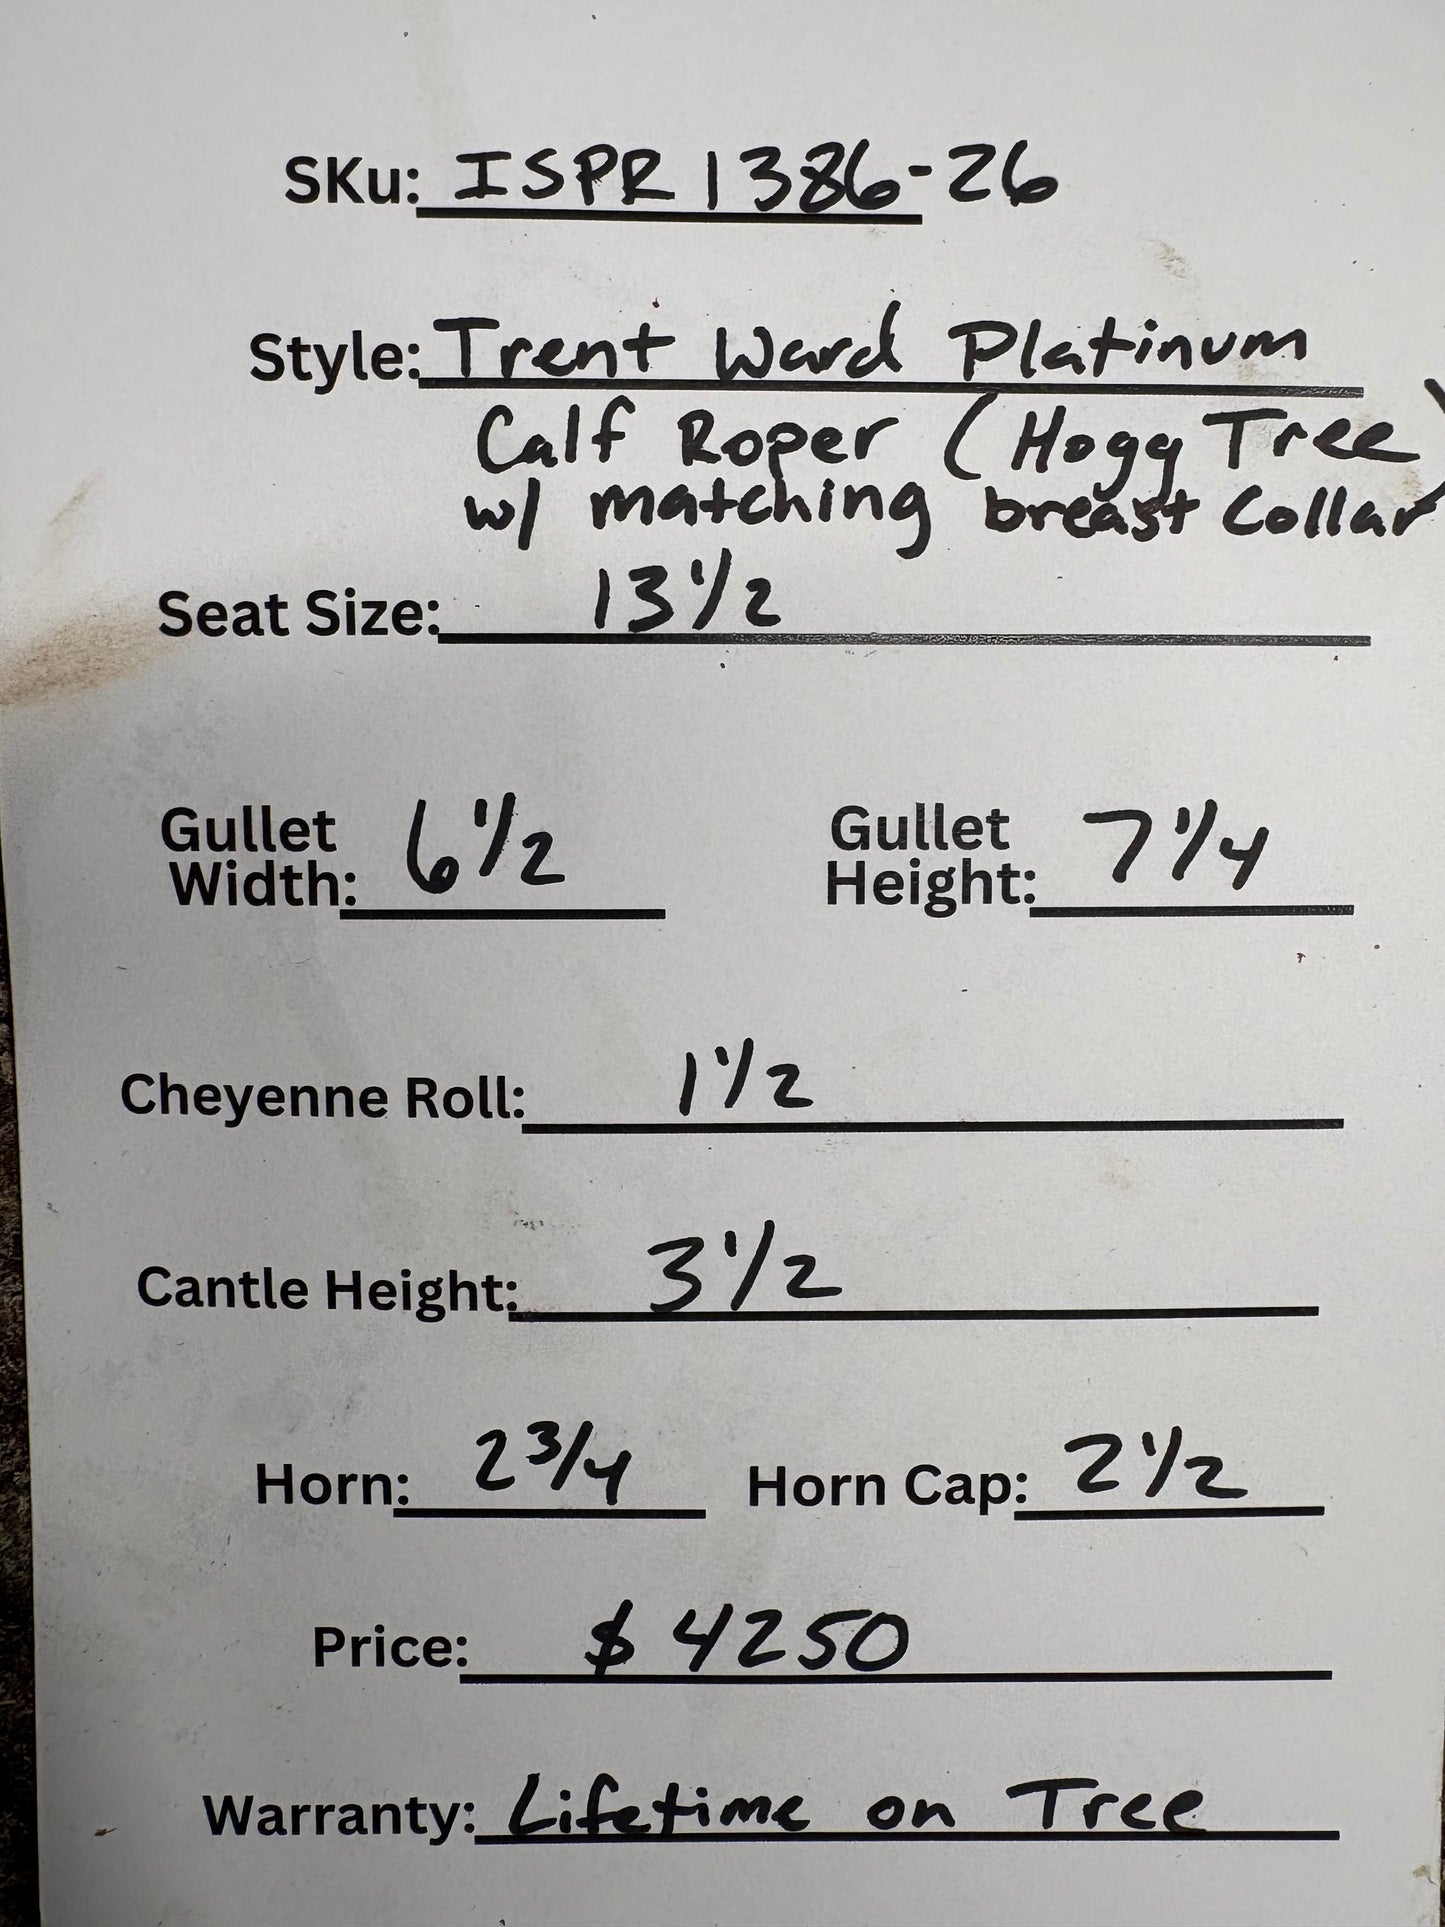 SKu: ISPR1386-26
Style: Trent Ward Platinum
Calf Roper (Hogg Tree)
w/ matching breast Collar
Seat Size: 13 1/2
Gullet Width: 6 1/2 Gullet Height: 7 1/4
Cheyenne Roll: 1 1/2
Cantle Height: 3 1/2
Horn: 2 3/4 Horn Cap: 2 1/2
Price: $4250
Warranty: Lifetime on Tree